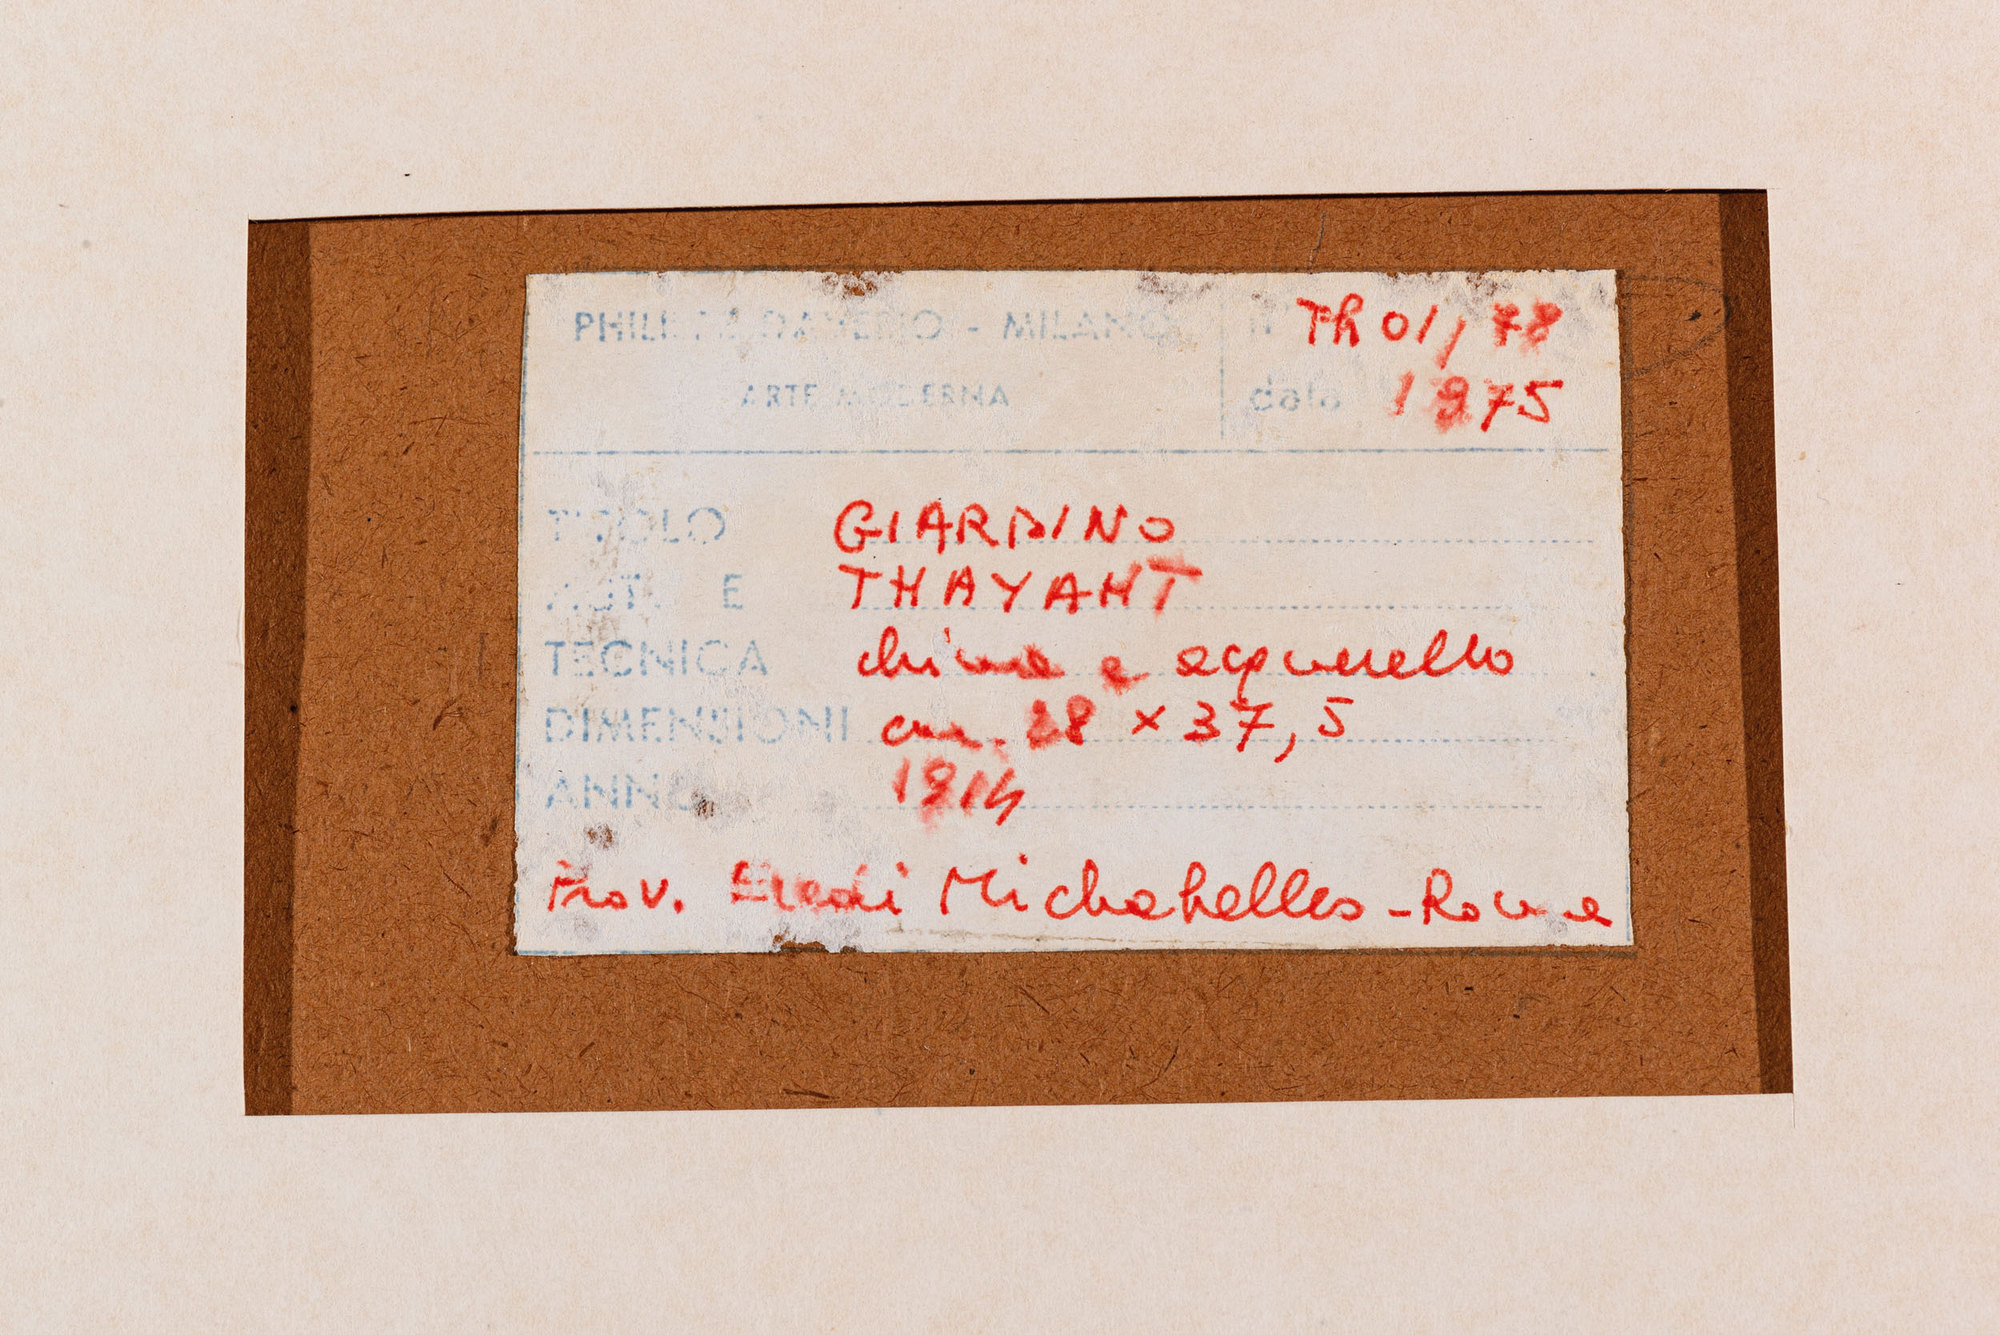 PHILIPPE DAVERIO - MILANO
ARTE MODERNA
n° Th 01/78
data 1975
TITOLO GIARDINO
AUTORE THAYAHT
TECNICA china e acquerello
DIMENSIONI cm. 28 x 37,5
ANNO 1914
Prov. Eredi Michahelles - Roma